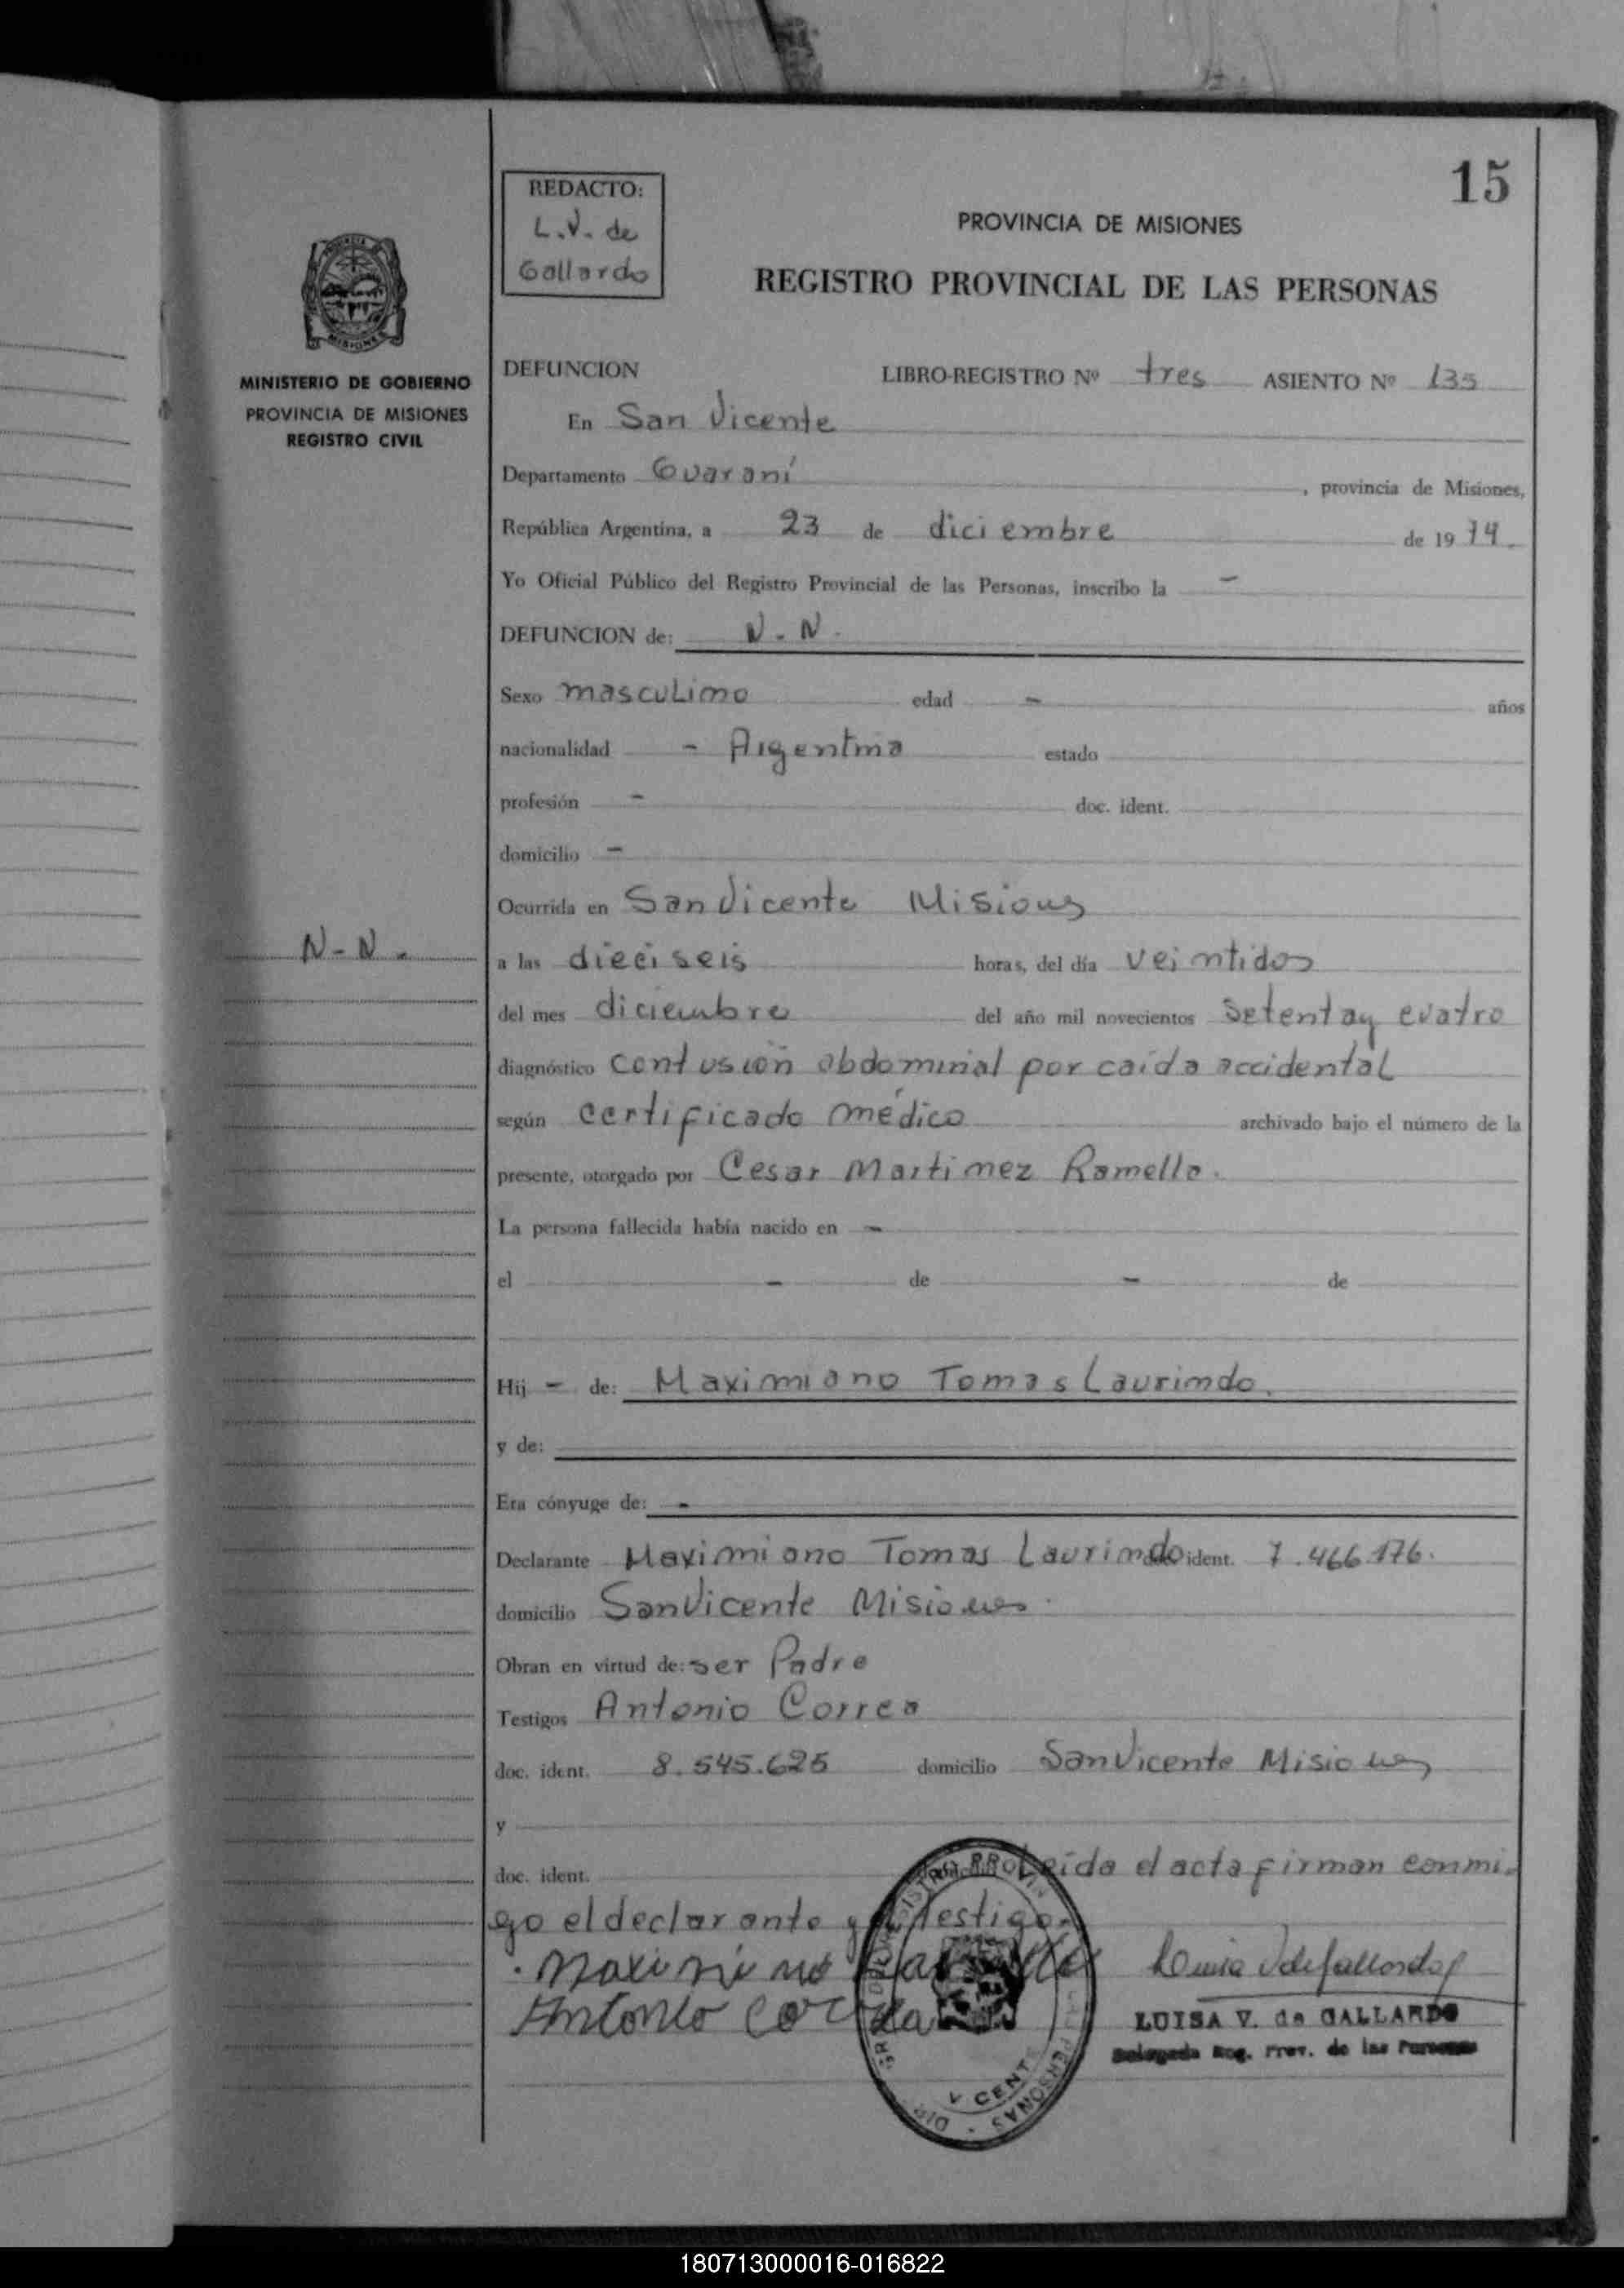 15
REDACTO:
L.V. de
Gallardo
PROVINCIA DE MISIONES
REGISTRO PROVINCIAL DE LAS PERSONAS
MINISTERIO DE GOBIERNO
PROVINCIA DE MISIONES
REGISTRO CIVIL
DEFUNCION LIBRO-REGISTRO Nº tres ASIENTO Nº 135
En San Vicente
Departamento Guaraní, provincia de Misiones,
República Argentina, a 23 de diciembre de 1974.
Yo Oficial Público del Registro Provincial de las Personas, inscribo la -
DEFUNCION de: N.N.
Sexo masculino edad - años
nacionalidad - Argentina estado
profesión - doc. ident.
domicilio -
Ocurrida en San Vicente Misiones
N-N.
a las dieciseis horas, del día veintidos
del mes diciembre del año mil novecientos setenta y cuatro
diagnóstico contusión abdominal por caída accidental
según certificado médico archivado bajo el número de la
presente, otorgado por Cesar Martinez Ramello.
La persona fallecida había nacido en -
el - de - de
Hij - de: Maximiano Tomas Laurindo.
y de:
Era cónyuge de: -
Declarante Maximiano Tomas Laurindo ident. 7.466.176.
domicilio San Vicente Misiones.
Obran en virtud de: ser Padre
Testigos Antonio Correa
doc. ident. 8.545.625 domicilio San Vicente Misiones
y
doc. ident. Leída el acta firman conmi-
go el declarante y el testigo.
Antonio Correa
LUISA V. de GALLARDO
Delegada Reg. Prov. de las Personas
180713000016-016822